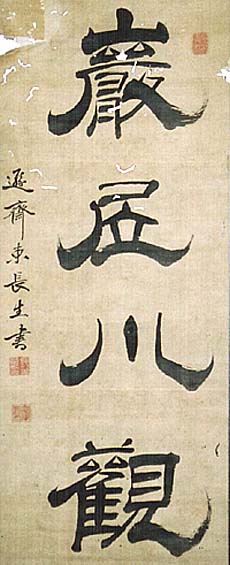 巖居川觀
齋東長生書